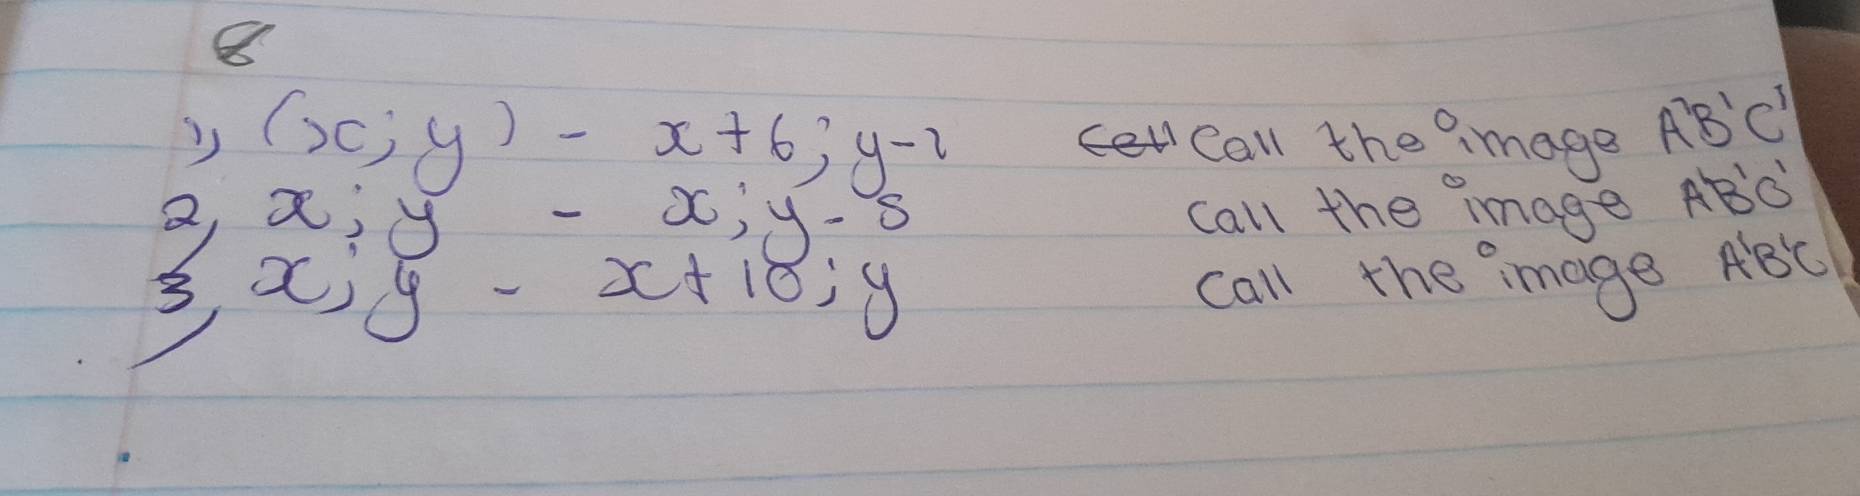 8
1, (x; y) - x+6; y-2 Call the image A'B'C'
2, x; y - x; y-5 call the image A'B'C'
3, x; y - x+10; y call the image A'B'C